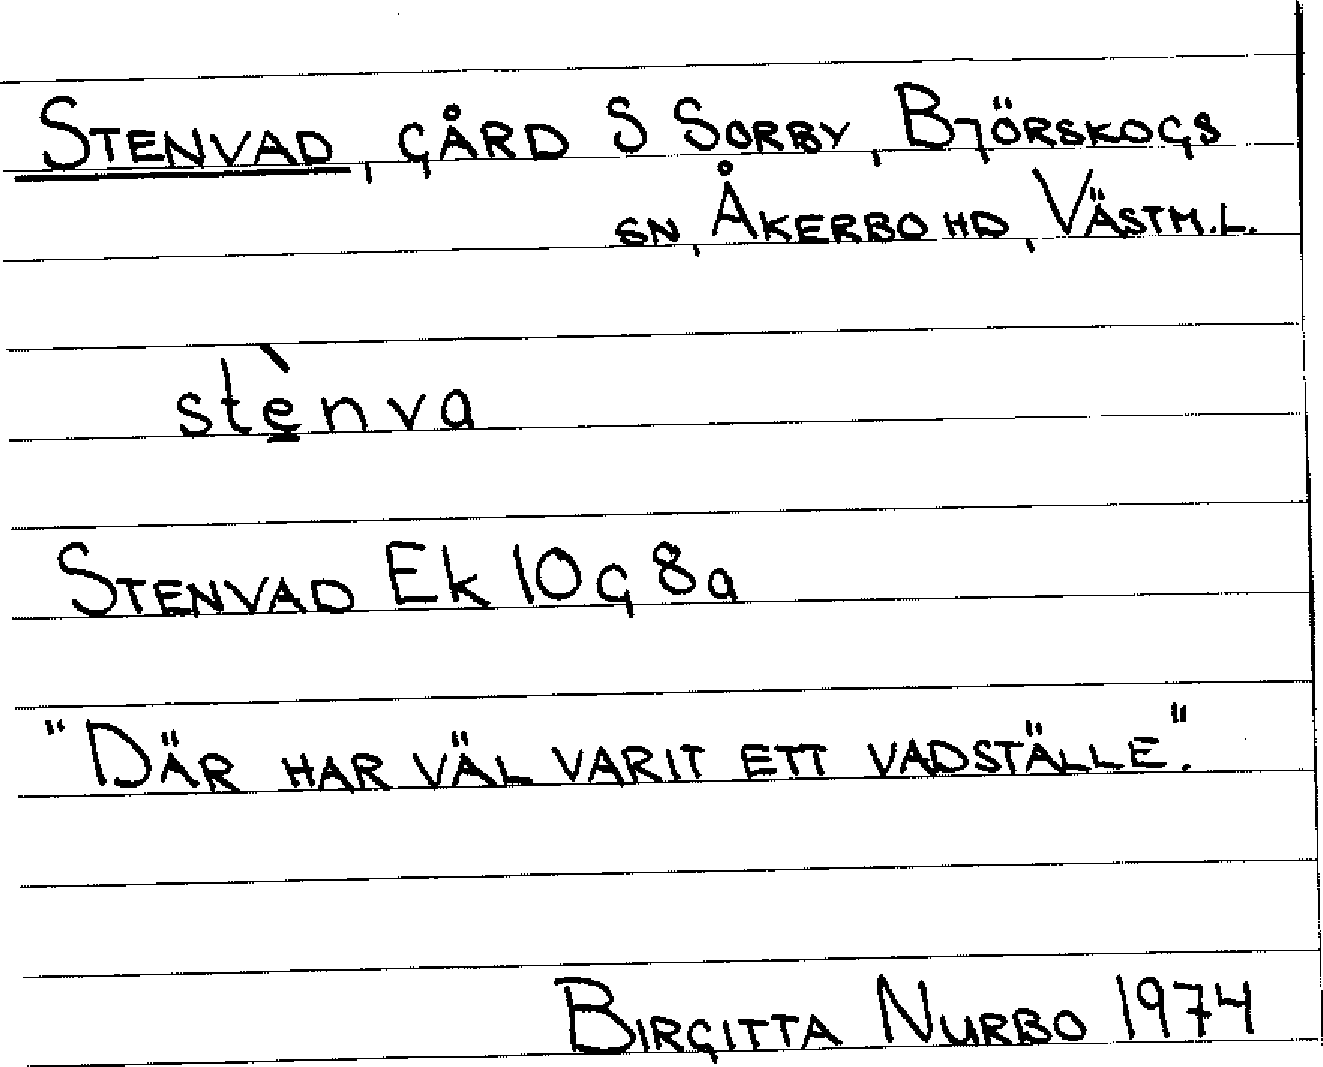 STENVAD, GÅRD S SORBY, BJÖRSKOGS
SN, ÅKERBO HD, VÄSTM.L.
stè̱nva
STENVAD Ek 10g 8a
"DÄR HAR VÄL VARIT ETT VADSTÄLLE".
BIRGITTA NURBO 1974